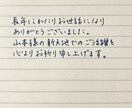 長年にわたりお世話になり
ありがとうございました。
山本様の新天地でのご活躍を
心よりお祈り申し上げます。